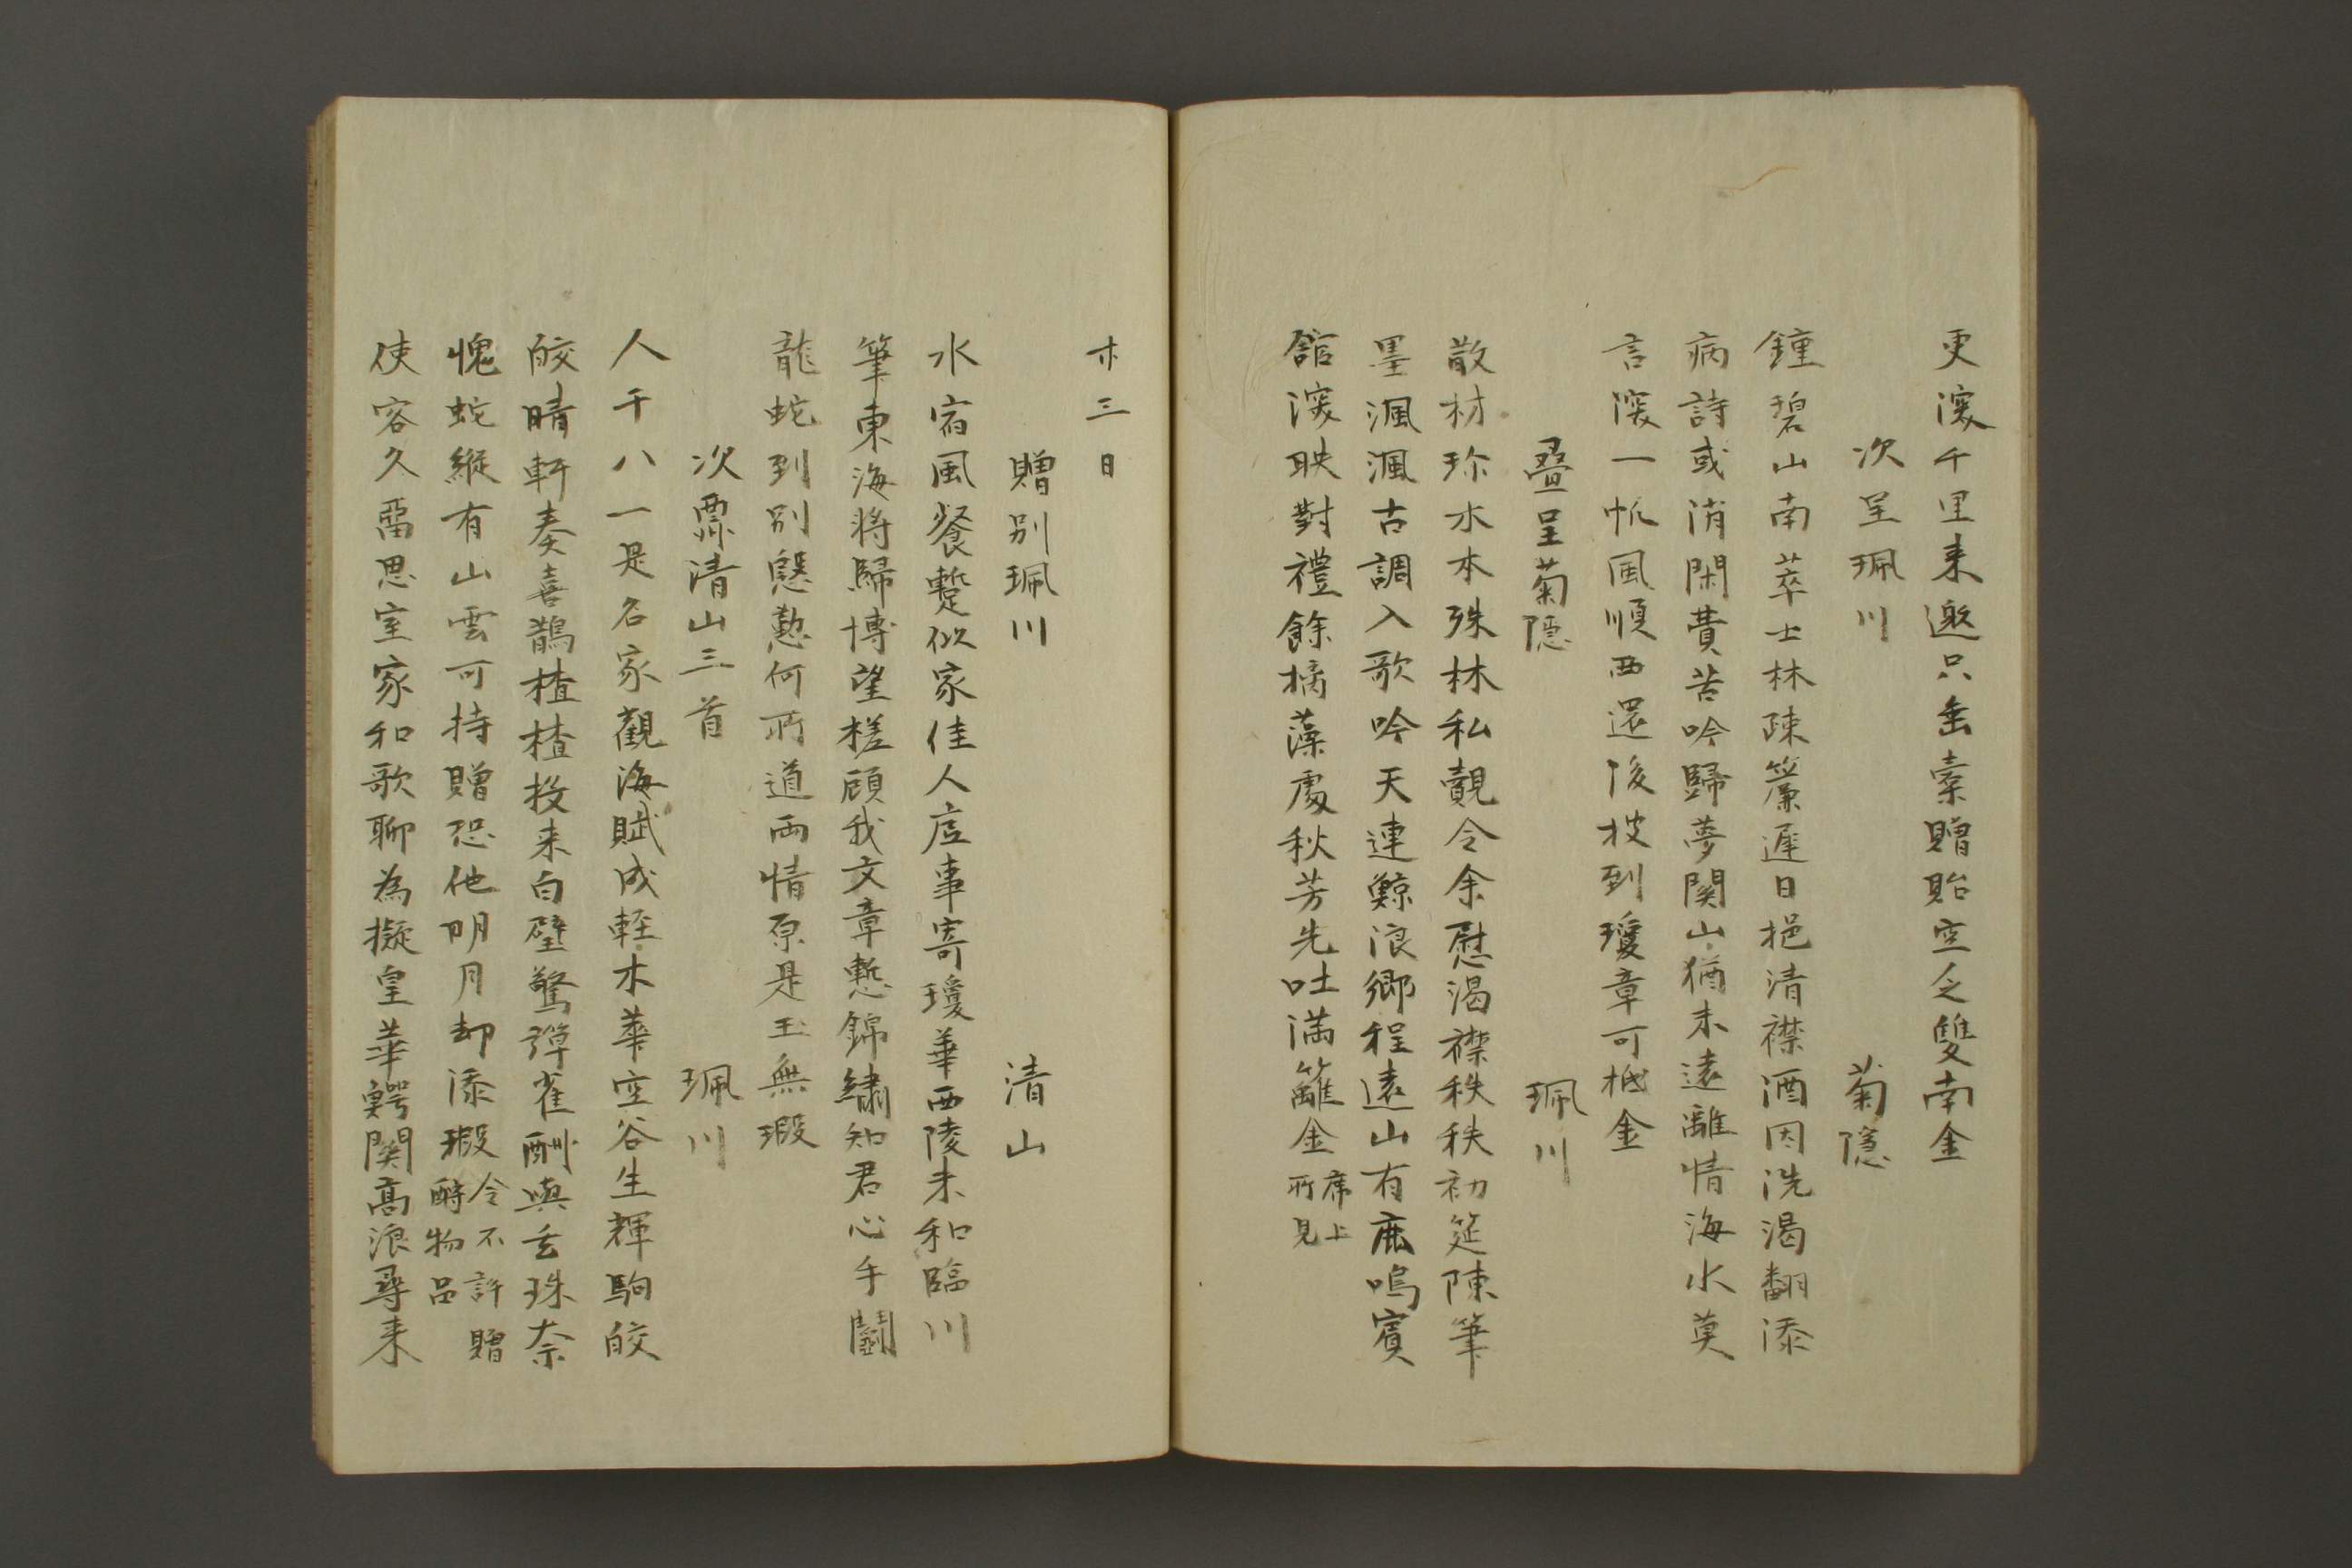 更深千里来邀只垂橐贈貽空乏雙南金
次呈珮川　菊隠
鍾碧山南萃士林疎簾遲日挹清襟酒因洗渴翻添
病詩或消閑費苦吟歸夢関山猶未遠離情海水莫
言深一帆風順西還後披到瓊章可抵金
疊呈菊隠　珮川
散材珎水本殊林私覿令余慰渴襟秩秩初筵陳筆
墨渢渢古調入歌吟天連鯨浪鄉程遠山有鹿鳴賓
館深映對禮餘摛藻處秋芳先吐満籬金席上所見
廿三日
贈别珮川　清山
水宿風餐蹔似家佳人底事寄瓊華西陵未和臨川
筆東海将歸博望槎顧我文章慙錦繡知君心手鬪
龍蛇到别慇懃何所道両情原是玉無瑕
次票清山三首　珮川
人千八一是名家觀海賦成軽木華空谷生輝駒皎
皎晴軒奏喜鵲楂楂投来白璧驚彈雀酬與玄珠奈
愧蛇縱有山雲可持贈恐他明月却添瑕令不許贈酹物品
使容久畱思室家和歌聊為擬皇華鰐関高浪尋来